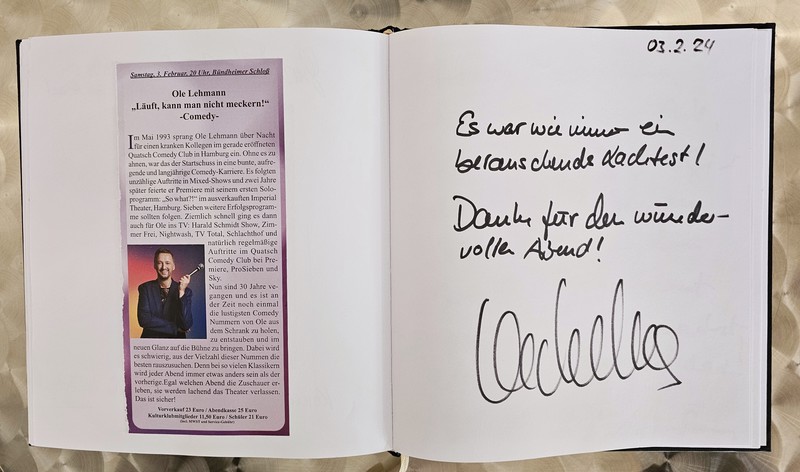 Samstag, 3. Februar, 20 Uhr, Bündheimer Schloß
Ole Lehmann
„Läuft, kann man nicht meckern!“
-Comedy-
Im Mai 1993 sprang Ole Lehmann über Nacht
für einen kranken Kollegen im gerade eröffneten
Quatsch Comedy Club in Hamburg ein. Ohne es zu
ahnen, war das der Startschuss in eine bunte, aufre-
gende und langjährige Comedy-Karriere. Es folgten
unzählige Auftritte in Mixed-Shows und zwei Jahre
später feierte er Premiere mit seinem ersten Solo-
programm: „So what?!“ im ausverkauften Imperial
Theater, Hamburg. Sieben weitere Erfolgsprogram-
me sollten folgen. Ziemlich schnell ging es dann
auch für Ole ins TV: Harald Schmidt Show, Zim-
mer Frei, Nightwash, TV Total, Schlachthof und
natürlich regelmäßige
Auftritte im Quatsch
Comedy Club bei Pre-
miere, ProSieben und
Sky.
Nun sind 30 Jahre ve-
gangen und es ist an
der Zeit noch einmal
die lustigsten Comedy
Nummern von Ole aus
dem Schrank zu holen,
zu entstauben und im
neuen Glanz auf die Bühne zu bringen. Dabei wird
es schwierig, aus der Vielzahl dieser Nummen die
besten rauszusuchen. Denn bei so vielen Klassikern
wird jeder Abend immer etwas anders sein als der
vorherige.Egal welchen Abend die Zuschauer er-
leben, sie werden lachend das Theater verlassen.
Das ist sicher!
Vorverkauf 23 Euro / Abendkasse 25 Euro
Kulturklubmitglieder 11,50 Euro / Schüler 21 Euro
(incl. MWST und Service-Gebühr)
03.2.24
Es war wie immer ein
berauschendes Lachfest!
Danke für den wunder-
vollen Abend!